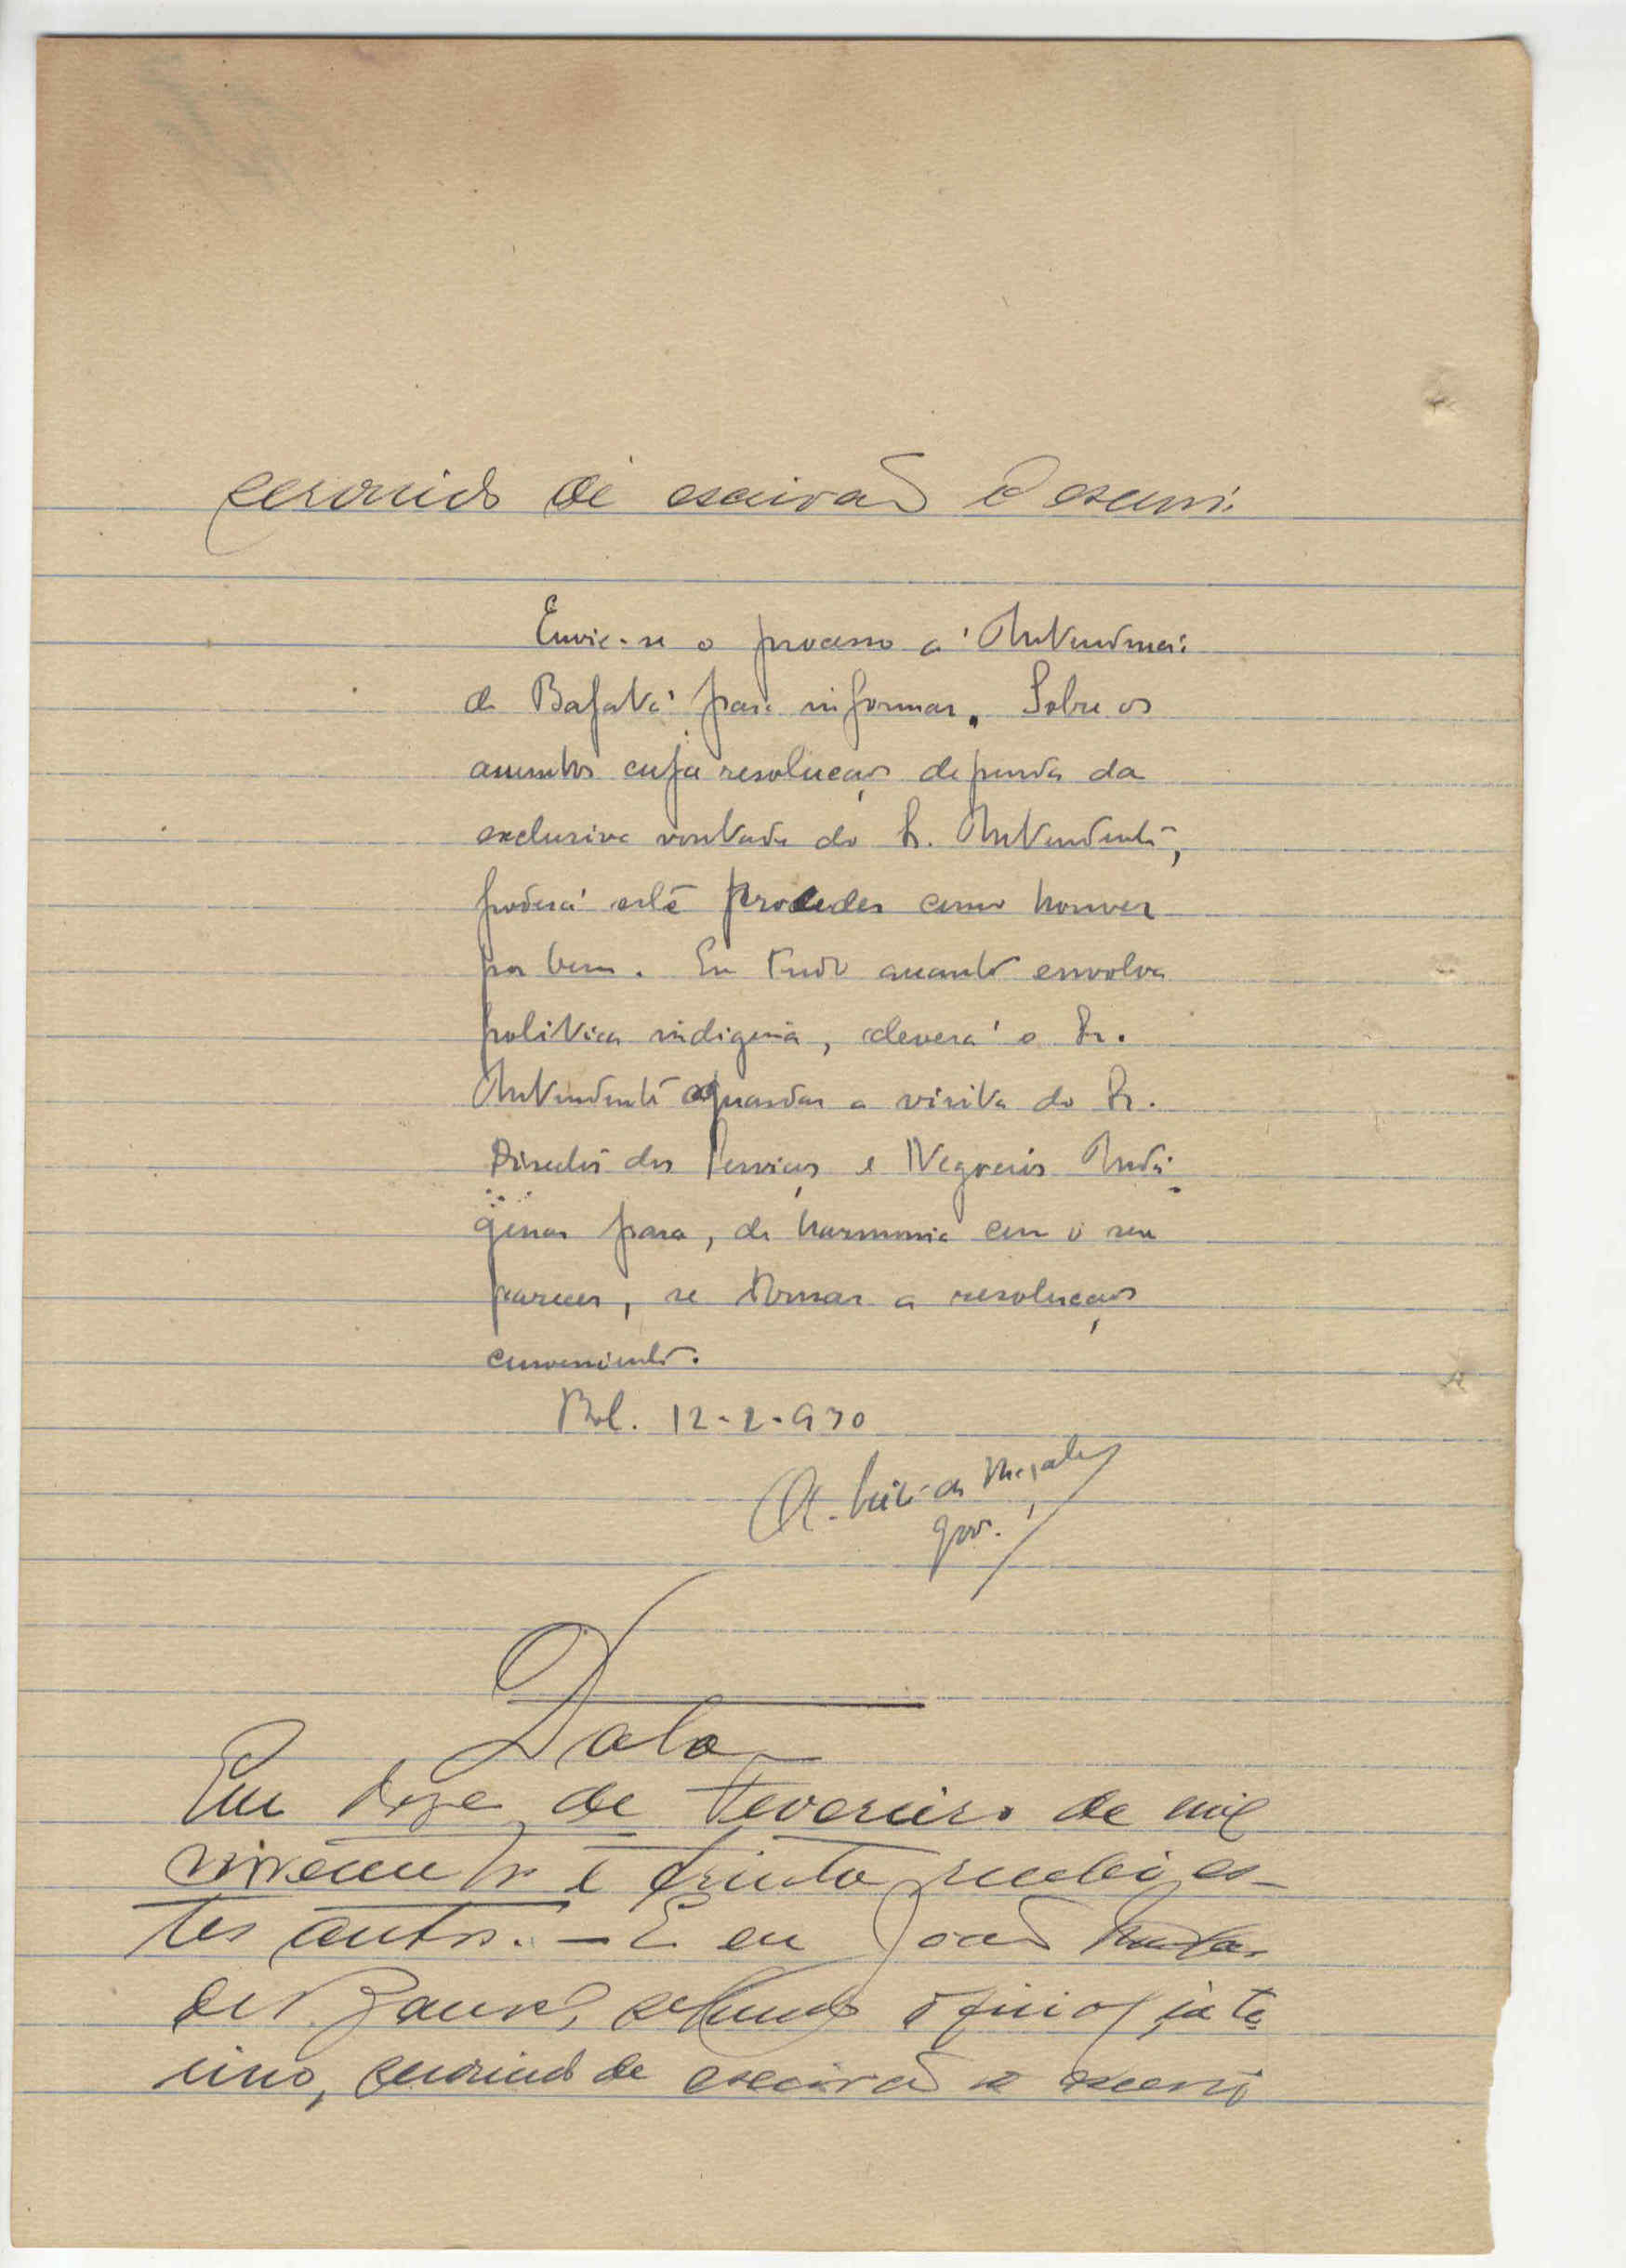 servindo de escrivão o escrevi.
Envie-se o processo á Intendencia
de Bafatá para informar. Sobre os
assuntos cuja resolução dependa da
exclusiva vontade do Sr. Intendente,
poderá este proceder como houver
por bem. Em tudo quanto envolva
politica indigena, deverá o Sr.
Intendente aguardar a visita do Sr.
Director dos Serviços e Negocios Indi-
genas para, de harmonia com o seu
parecer, se tomar a resolução
conveniente.
Bol. 12-2-930
Leite de Magalhães
Gov.
Data
Em doze de Fevereiro de mil
novecentos e trinta recebi es-
tes autos. — E eu João
de segundo oficial inte
rino, servindo de escrivão o escrevi